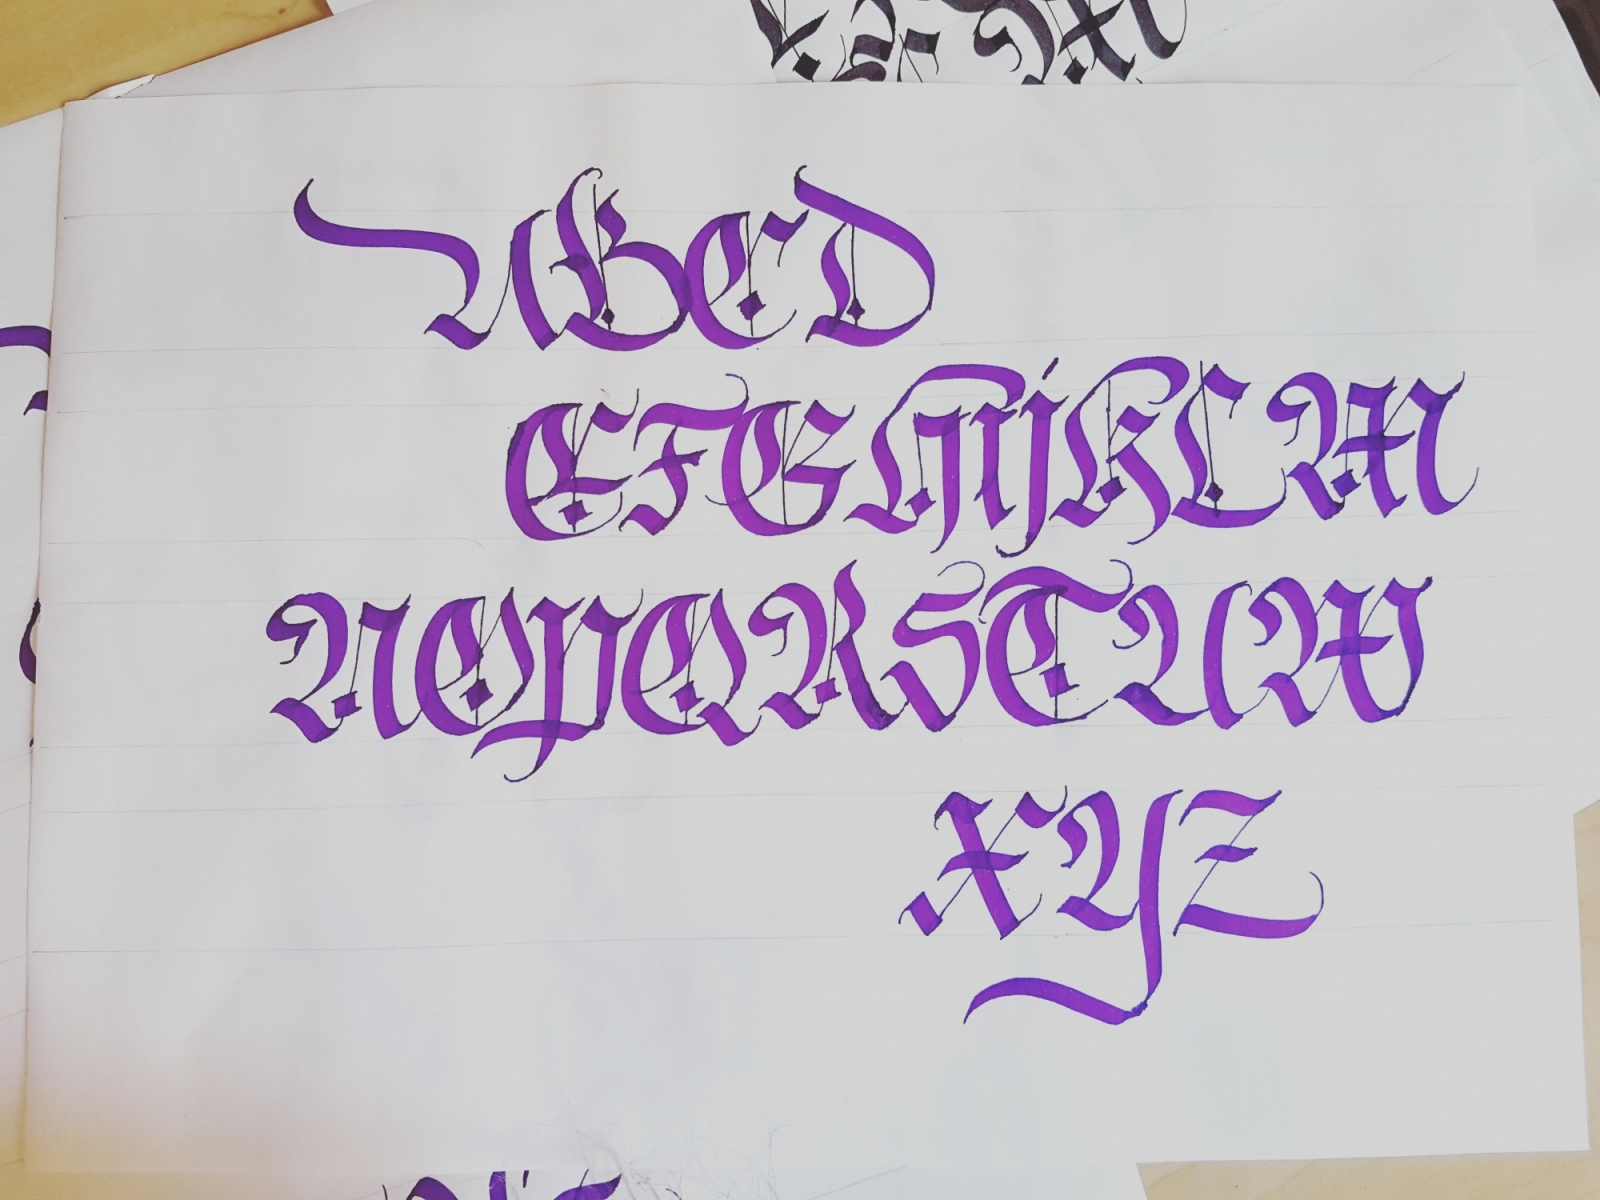 ABCD
EFGHIJKLM
NOPQRSTUW
XYZ